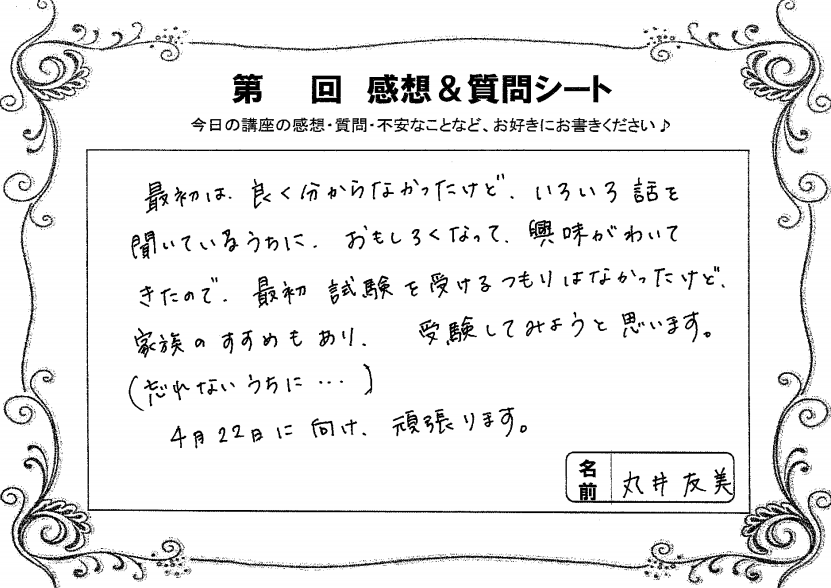 第　回 感想＆質問シート
今日の講座の感想・質問・不安なことなど、お好きにお書きください♪
最初は、良く分からなかったけど、いろいろ話を
聞いているうちに、おもしろくなって、興味がわいて
きたので、最初 試験を受けるつもりはなかったけど、
家族のすすめもあり、 受験してみようと思います。
(忘れないうちに…)
4月22日に向け、頑張ります。
名前 丸井友美